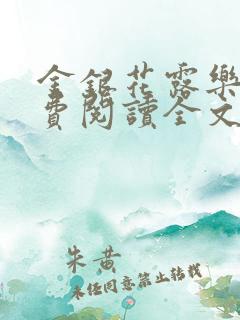 金銀花露樂
費閱讀全文
朱黄
未经同意禁止转载